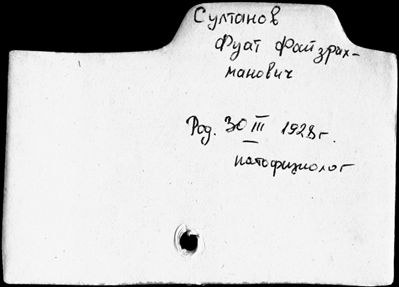 Султанов
Фуат Файзрах-
манович
Род. 30 III 1928г.
патофизиолог